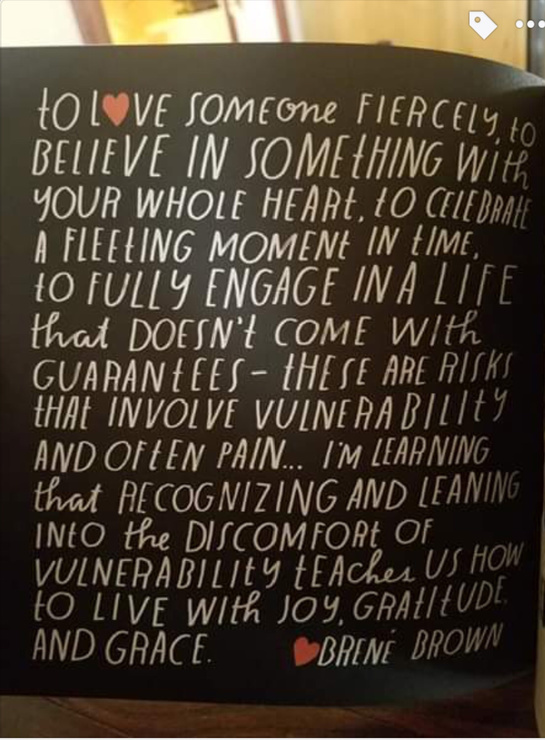 to L♥VE SOMEone FIERCELY, to
BELIEVE IN SOMEtHING With
YOUR WHOLE HEARt, tO CELEBRAtE
A FLEEtING MOMENt IN tIME,
tO FULLY ENGAGE IN A LIFE
that DOESN't COME WIth
GUARANtEES - tHESE ARE RISKS
tHAt INVOLVE VULNERABILItY
AND OFtEN PAIN... I'M LEARNING
that RECOGNIZING AND LEANING
INtO the DISCOMFORt OF
VULNERABILItY tEAches US HOW
tO LIVE WIth JOY, GRAtItUDE,
AND GRACE. ♥BRENÉ BROWN